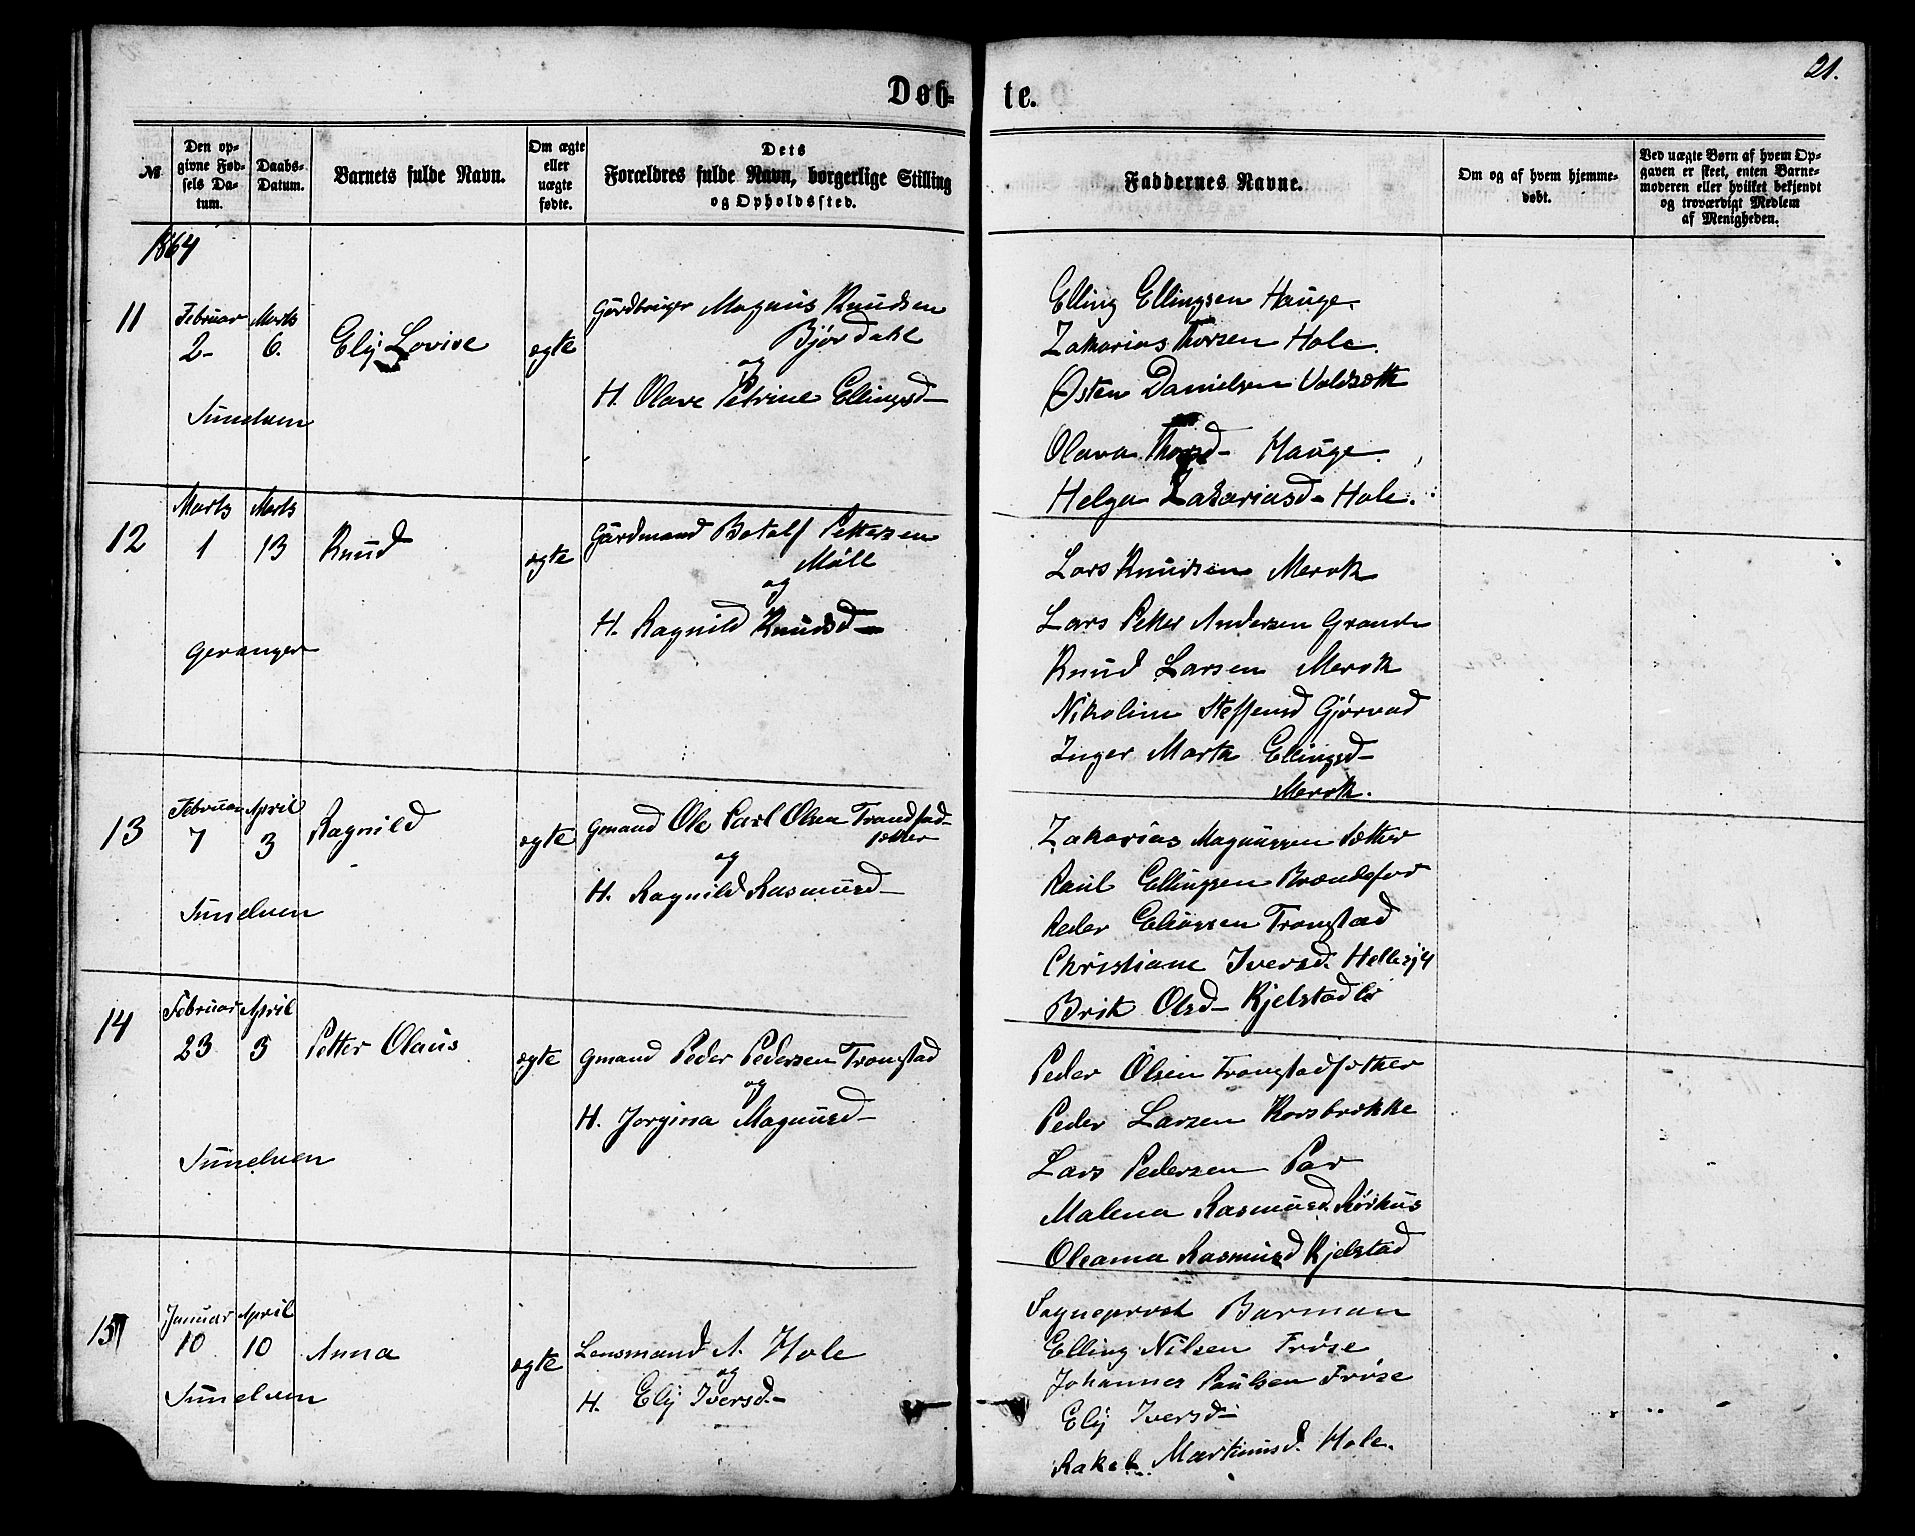 21.
Døb-
te.
№
Den op-
givne Fød-
sels Da-
tum.
Daabs-
Datum.
Barnets fulde Navn.
Om ægte
eller
uægte
fødte.
Dets
Forældres fulde Navn, borgerlige Stilling
og Opholdssted.
Faddernes Navne.
Om og af hvem hjemme-
døbt.
Ved uægte Børn af hvem Op-
gaven er skeet, enten Barne-
moderen eller hvilket bekjendt
og troværdigt Medlem
af Menigheden.
1864
11
Februar
2-
Marts
6.
Elij Lovise
ægte
Gårdbruger Magnus Knudsen
Bjørdahl
og
H. Olave Petrine Ellingsd-
Sunelven
Elling Ellingsen Hauge.
Zakarias Thorsen Hole.
Østen Danielsen
Olava Thorsd- Hauge.
Helga Zakariasd- Hole.
12
Marts
1
Marts
13
Knud
ægte
Gårdmand Botolf Pettersen
Møll
og
H. Ragnild Knudsd-
Geranger
Lars Knudsen Merok
Lars Petter Andersen Grande
Knud Larsen Merok
Nikoline Steffensd Gjørvad
Inger Marte Ellingsd-
Merok.
13
Februar
7
April
3
Ragnild
ægte
Gmand Ole Carl Olsen Tronstad-
sætter
og
H. Ragnild Rasmusd-
Sunelven
Zakarias Magnussen Sætter
Paul Ellingsen
Peder Eliassen Tronstad
Christiane Iversd. Hellesylt
Brit Olsd- Kjelstadli
14
Februar
23
April
3
Petter Olaus
ægte
Gmand Peder Pedersen Tronstad
og
H. Jorgina Magnusd-
Sunelven
Peder Olsen Tronstadsæther
Peder Larsen Korsbrekke
Lars Pedersen
Malena Rasmusd. Rørhus
Oleana Rasmusd Kjelstad
15
Januar
10
April
10
Anna
ægte
Lensmand A. Hole
og
H. Elij Iversd-
Sunelven
Sogneprest Barman
Elling Nilsen Frøse
Johannes Paulsen Frøse
Elij Iversd-
Rakel Martinusd. Hole.